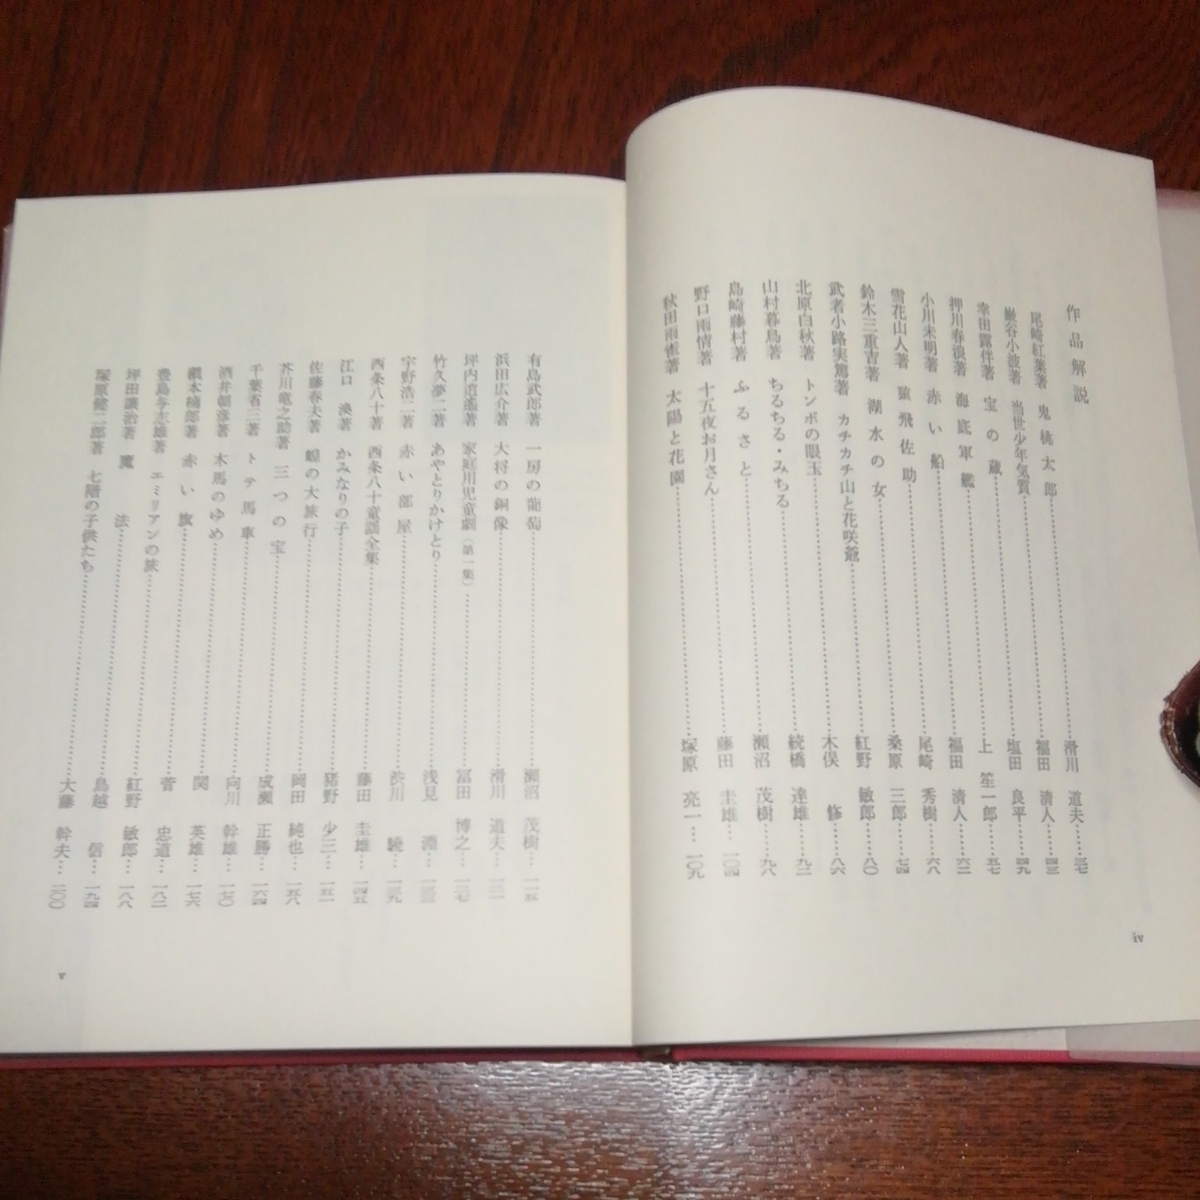 作品解説
尾崎紅葉著 鬼桃太郎……滑川 道夫…三七
巌谷小波著 当世少年気質……福田 清人…四三
幸田露伴著 宝の蔵……塩田 良平…四九
押川春浪著 海底軍艦……上 笙一郎…五七
小川未明著 赤い船……福田 清人…六二
雪花山人著 猿飛佐助……尾崎 秀樹…六八
鈴木三重吉著 湖水の女……桑原 三郎…七四
武者小路実篤著 カチカチ山と花咲爺……紅野 敏郎…八〇
北原白秋著 トンボの眼玉……木俣 修…八六
山村暮鳥著 ちるちる・みちる……続橋 達雄…九二
島崎藤村著 ふるさと……瀬沼 茂樹…九八
野口雨情著 十五夜お月さん……藤田 圭雄…一〇四
秋田雨雀著 太陽と花園……塚原 亮一…一〇九
iv
有島武郎著 一房の葡萄……瀬沼 茂樹…一一五
浜田広介著 大将の銅像……滑川 道夫…一二一
坪内逍遙著 家庭用児童劇(第一集)……冨田 博之…一二七
竹久夢二著 あやとりかけとり……浅見 淵…一三三
宇野浩二著 赤い部屋……渋川 驍…一三九
西条八十著 西条八十童謡全集……藤田 圭雄…一四五
江口 渙著 かみなりの子……猪野 少三…一五一
佐藤春夫著 蝗の大旅行……岡田 純也…一五八
芥川竜之助著 三つの宝……成瀬 正勝…一六四
千葉省三著 トテ馬車……向川 幹雄…一七〇
酒井朝彦著 木馬のゆめ……関 英雄…一七六
槇本楠郎著 赤い旗……菅 忠道…一八二
豊島与志雄著 エミリアンの旅……紅野 敏郎…一八八
坪田譲治著 魔法……鳥越 信…一九四
塚原健二郎著 七階の子供たち……大藤 幹夫…二〇〇
v